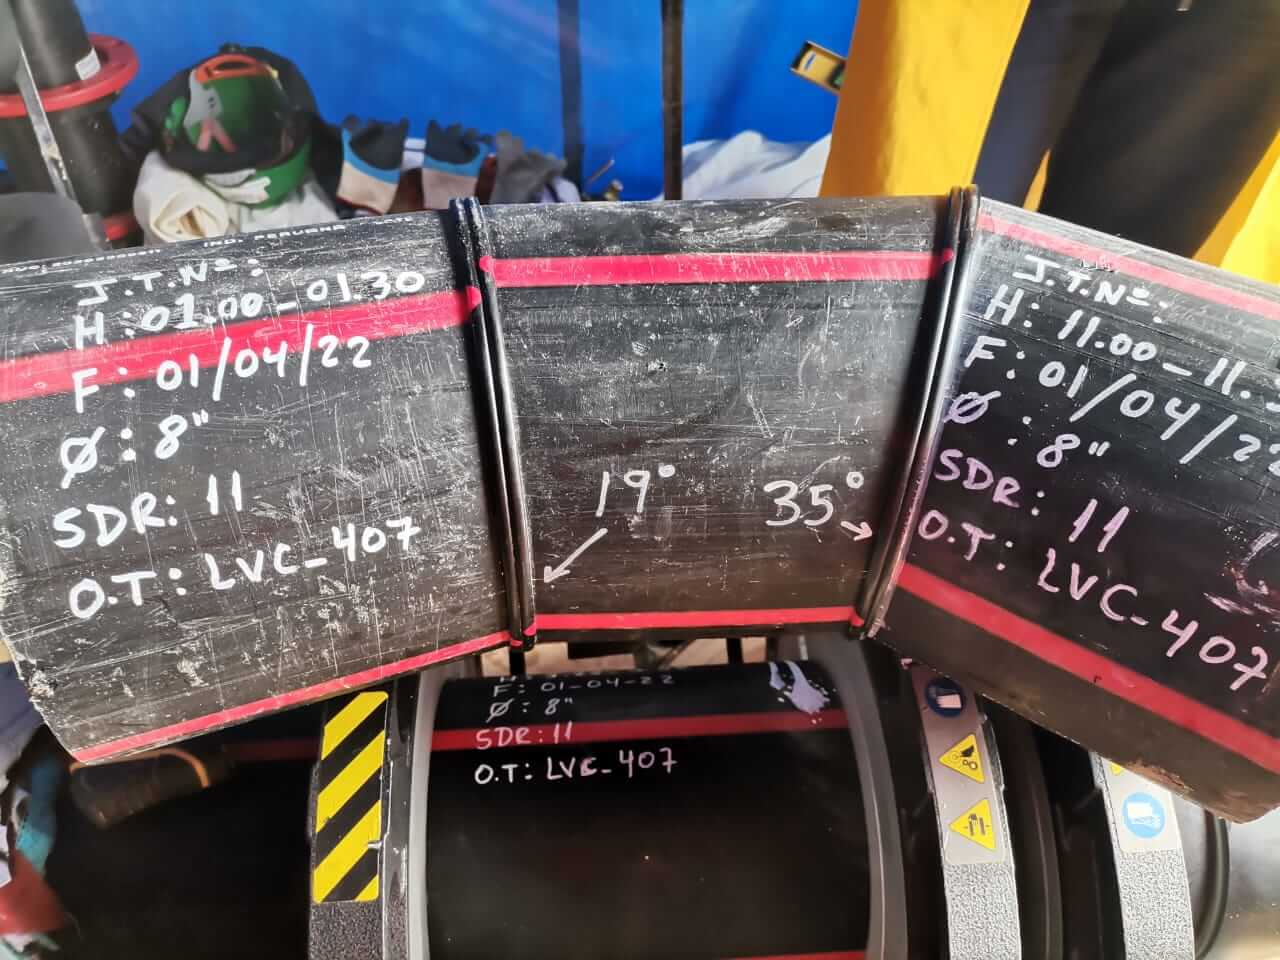 J.T.Nº:
H:01.00-01.30
F: 01/04/22
Ø: 8"
SDR: 11
O.T: LVC-407
19°
35°
J.T.Nº:
H: 11.00-11.
F: 01/04/22
Ø: 8"
SDR: 11
O.T: LVC-407
F: 01-04-22
Ø: 8"
SDR: 11
O.T: LVC-407